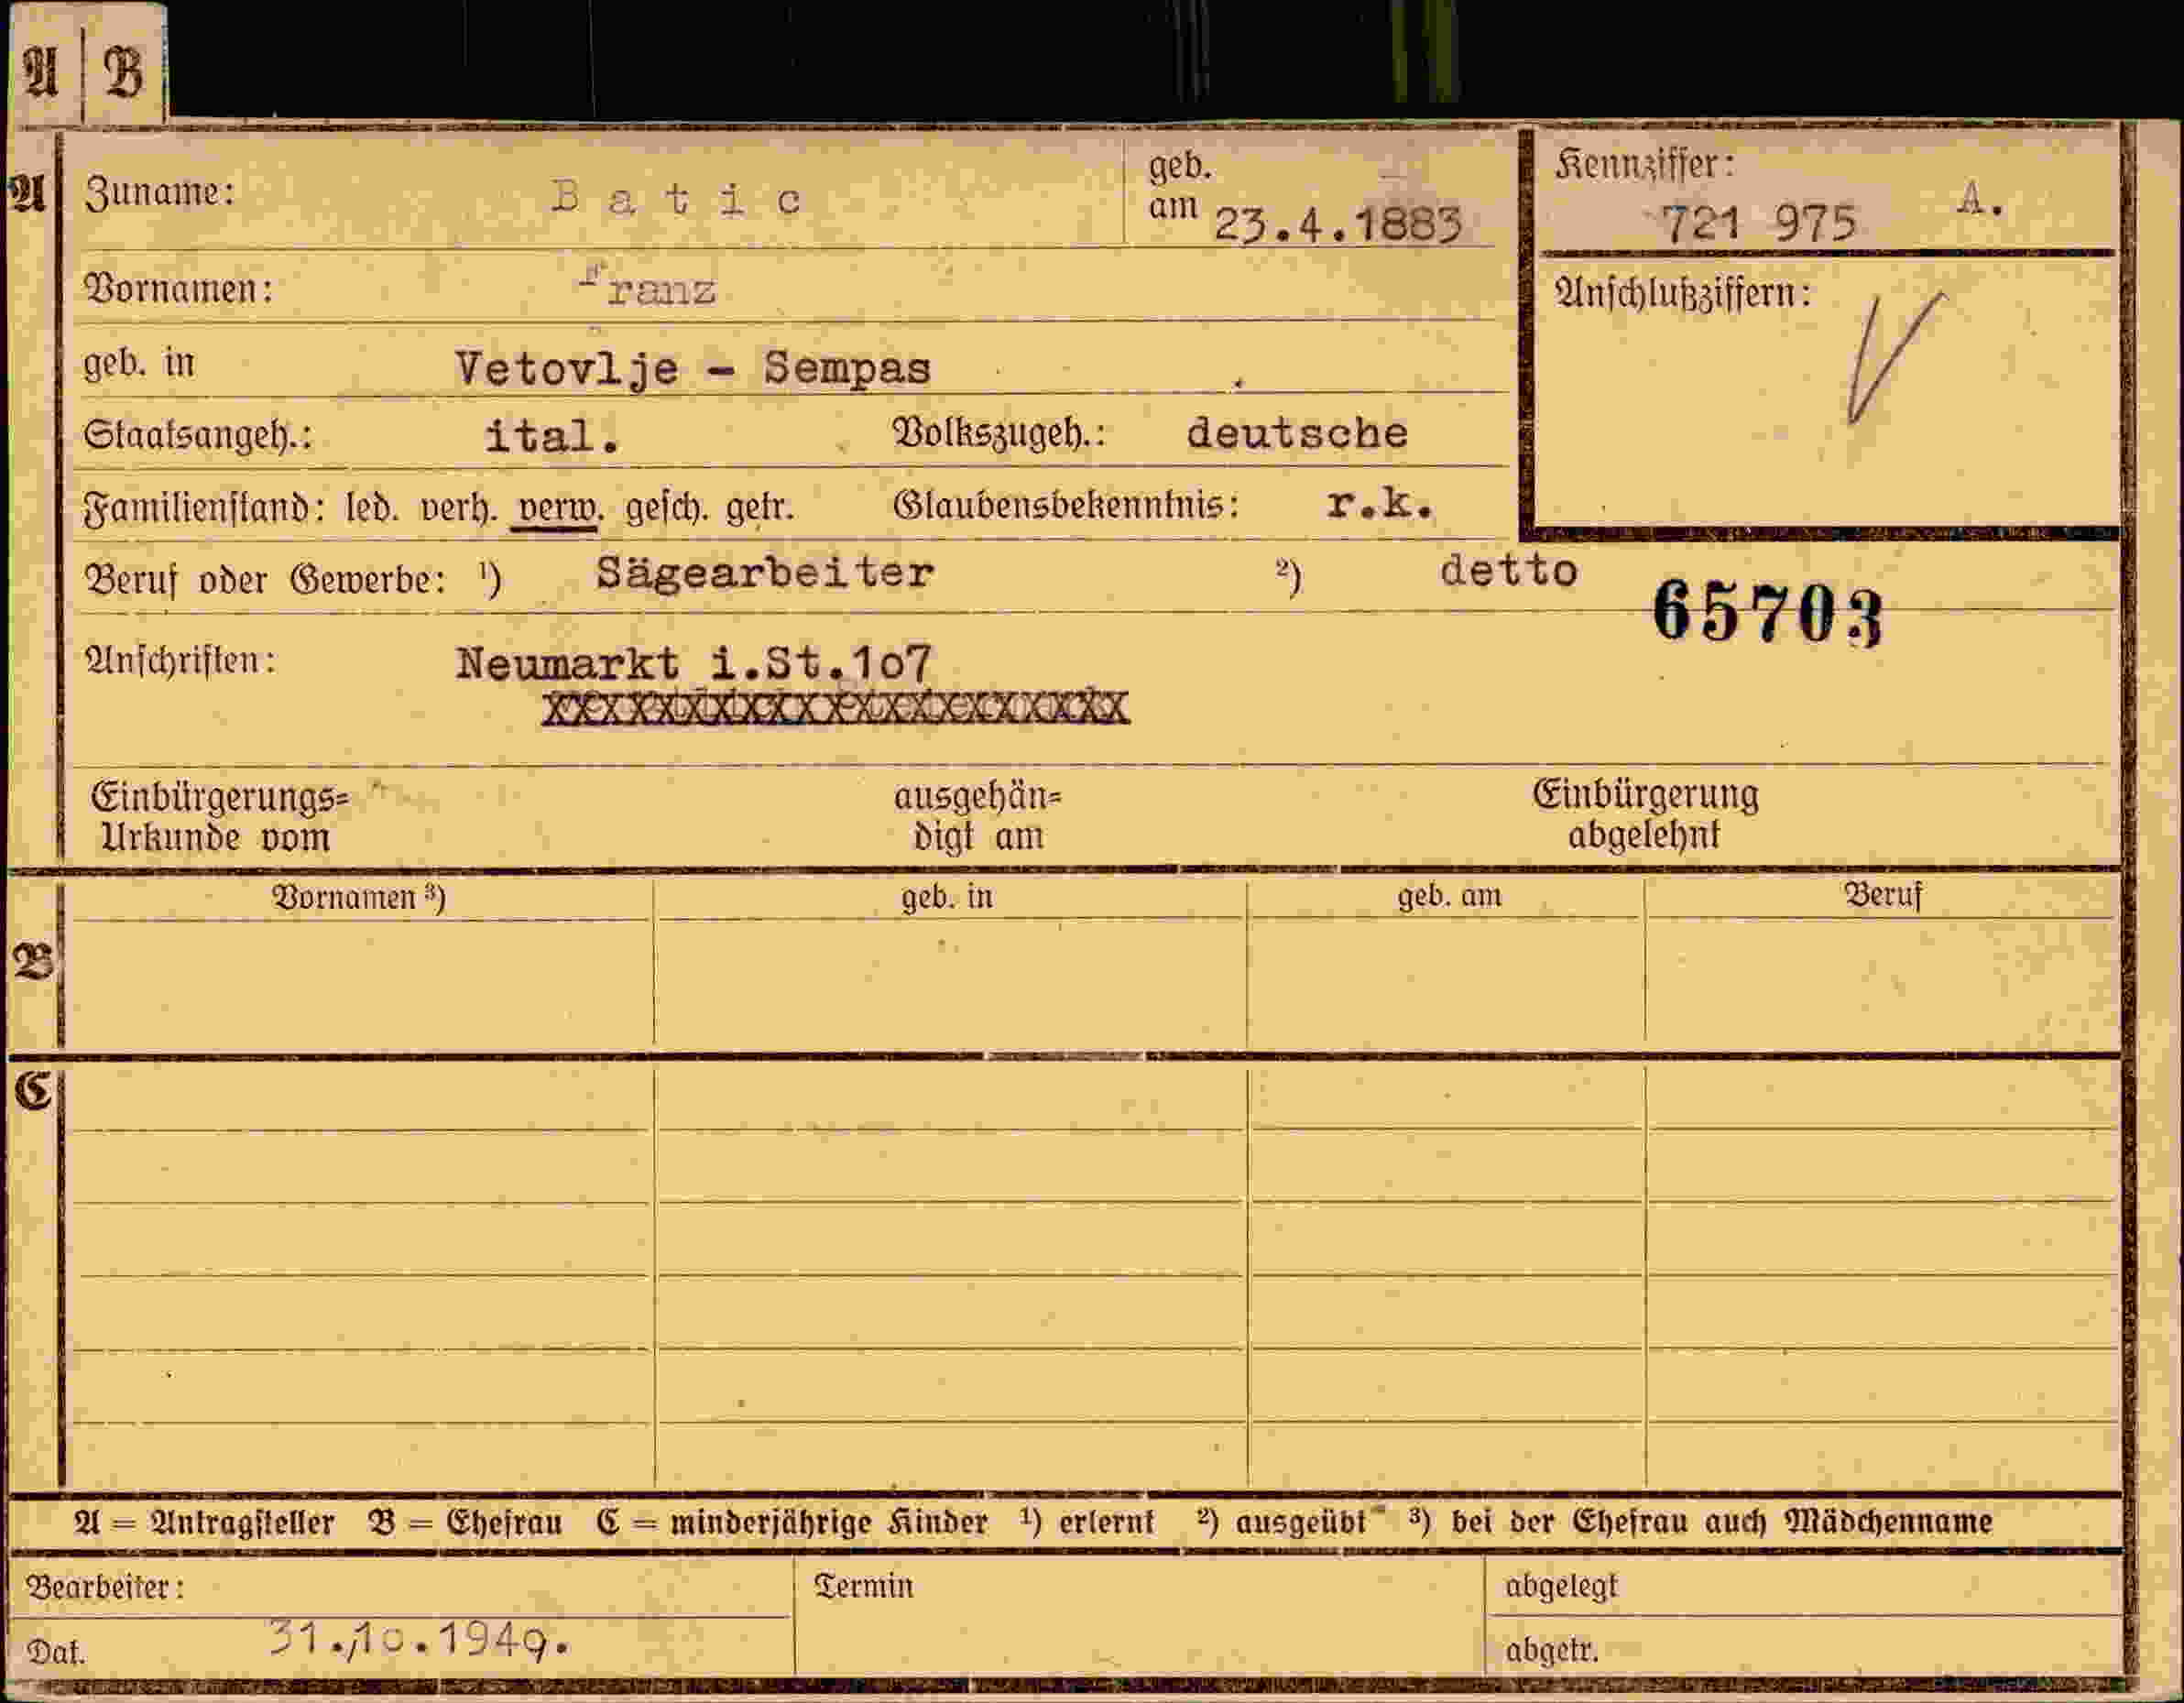 A B
A Zuname: Batic geb. am 23.4.1883 Kennziffer: 721 975 A.
Vornamen: Franz Anschlußziffern:
geb. in Vetovlje - Sempas
Staatsangeh.: ital. Volkszugeh.: deutsche
Familienstand: led. verh. verw. gesch. getr. Glaubensbekenntnis: r.k.
Beruf oder Gewerbe: ¹) Sägearbeiter ²) detto
65703
Anschriften: Neumarkt i.St.1o7
Einbürgerungs= ausgehän= Einbürgerung
Urkunde vom digt am abgelehnt
Vornamen ³) geb. in geb. am Beruf
B
C
A = Antragsteller B = Ehefrau C = minderjährige Kinder ¹) erlernt ²) ausgeübt ³) bei der Ehefrau auch Mädchenname
Bearbeiter: Termin abgelegt
Dat. 31.10.1940. abgetr.